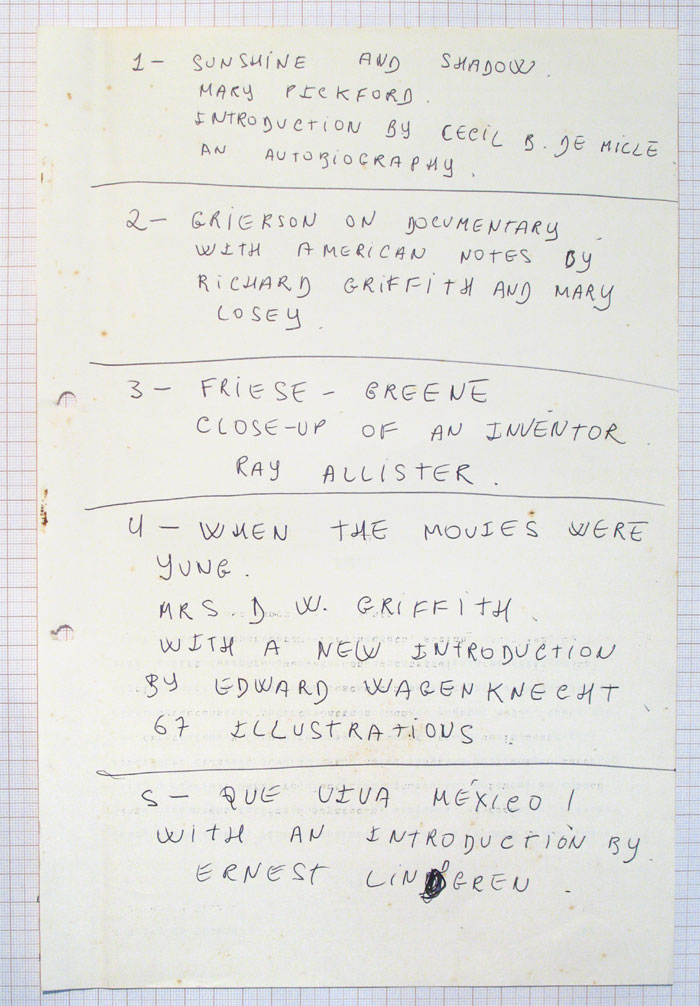 1- SUNSHINE AND SHADOW.
MARY PICKFORD.
INTRODUCTION BY CECIL B. DE MICLE
AN AUTOBIOGRAPHY.
2- GRIERSON ON DOCUMENTARY
WITH AMERICAN NOTES BY
RICHARD GRIFFITH AND MARY
LOSEY.
3- FRIESE - GREENE
CLOSE-UP OF AN INVENTOR.
RAY ALLISTER.
4- WHEN THE MOVIES WERE
YUNG.
MRS D W. GRIFFITH.
WITH A NEW INTRODUCTION
BY EDWARD WAGENKNECHT
67 ILLUSTRATIONS.
5- QUE VIVA MÉXICO!
WITH AN INTRODUCTION BY
ERNEST LINDGREN.